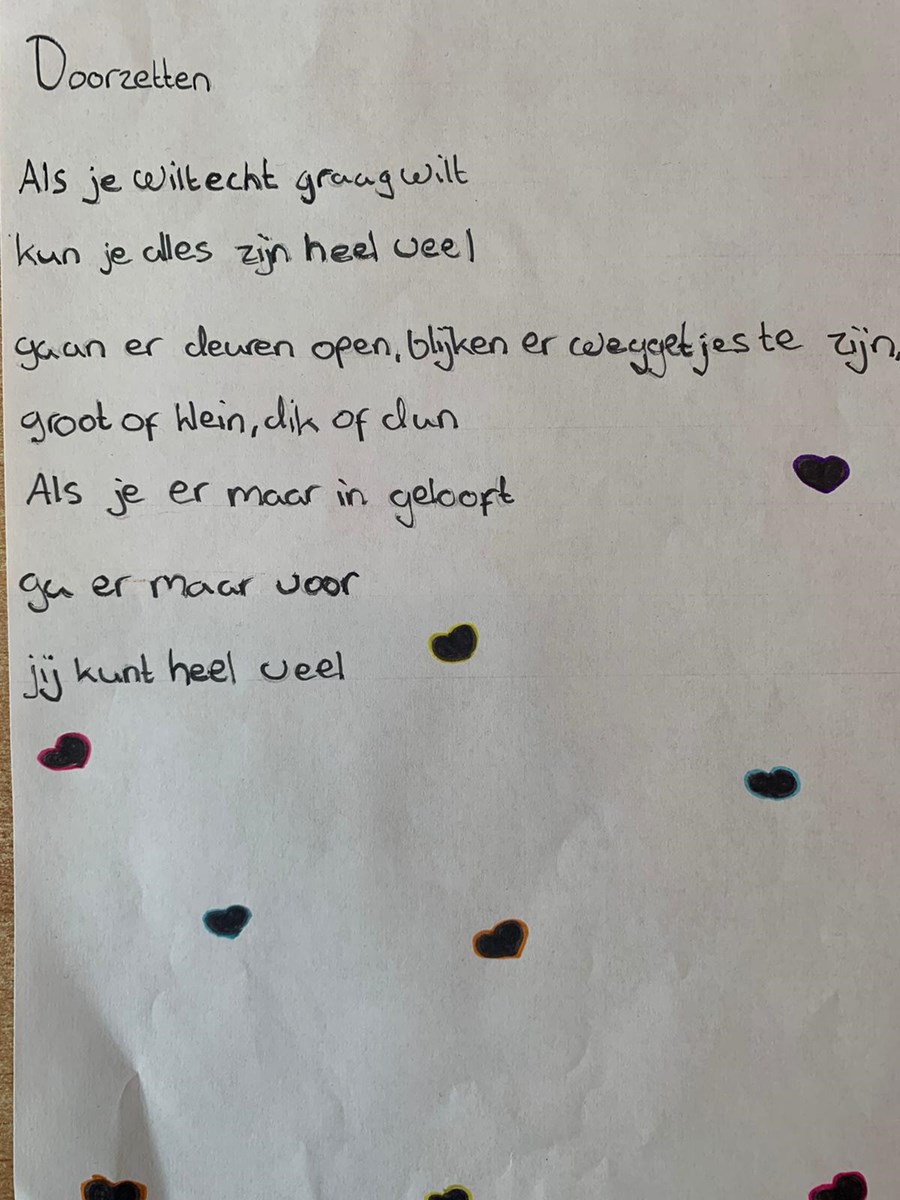 Doorzetten
Als je wilt echt graag wilt
kun je alles zijn heel veel
gaan er deuren open, blijken er weggetjes te zijn,
groot of klein, dik of dun
Als je er maar in gelooft
ga er maar voor
jij kunt heel veel